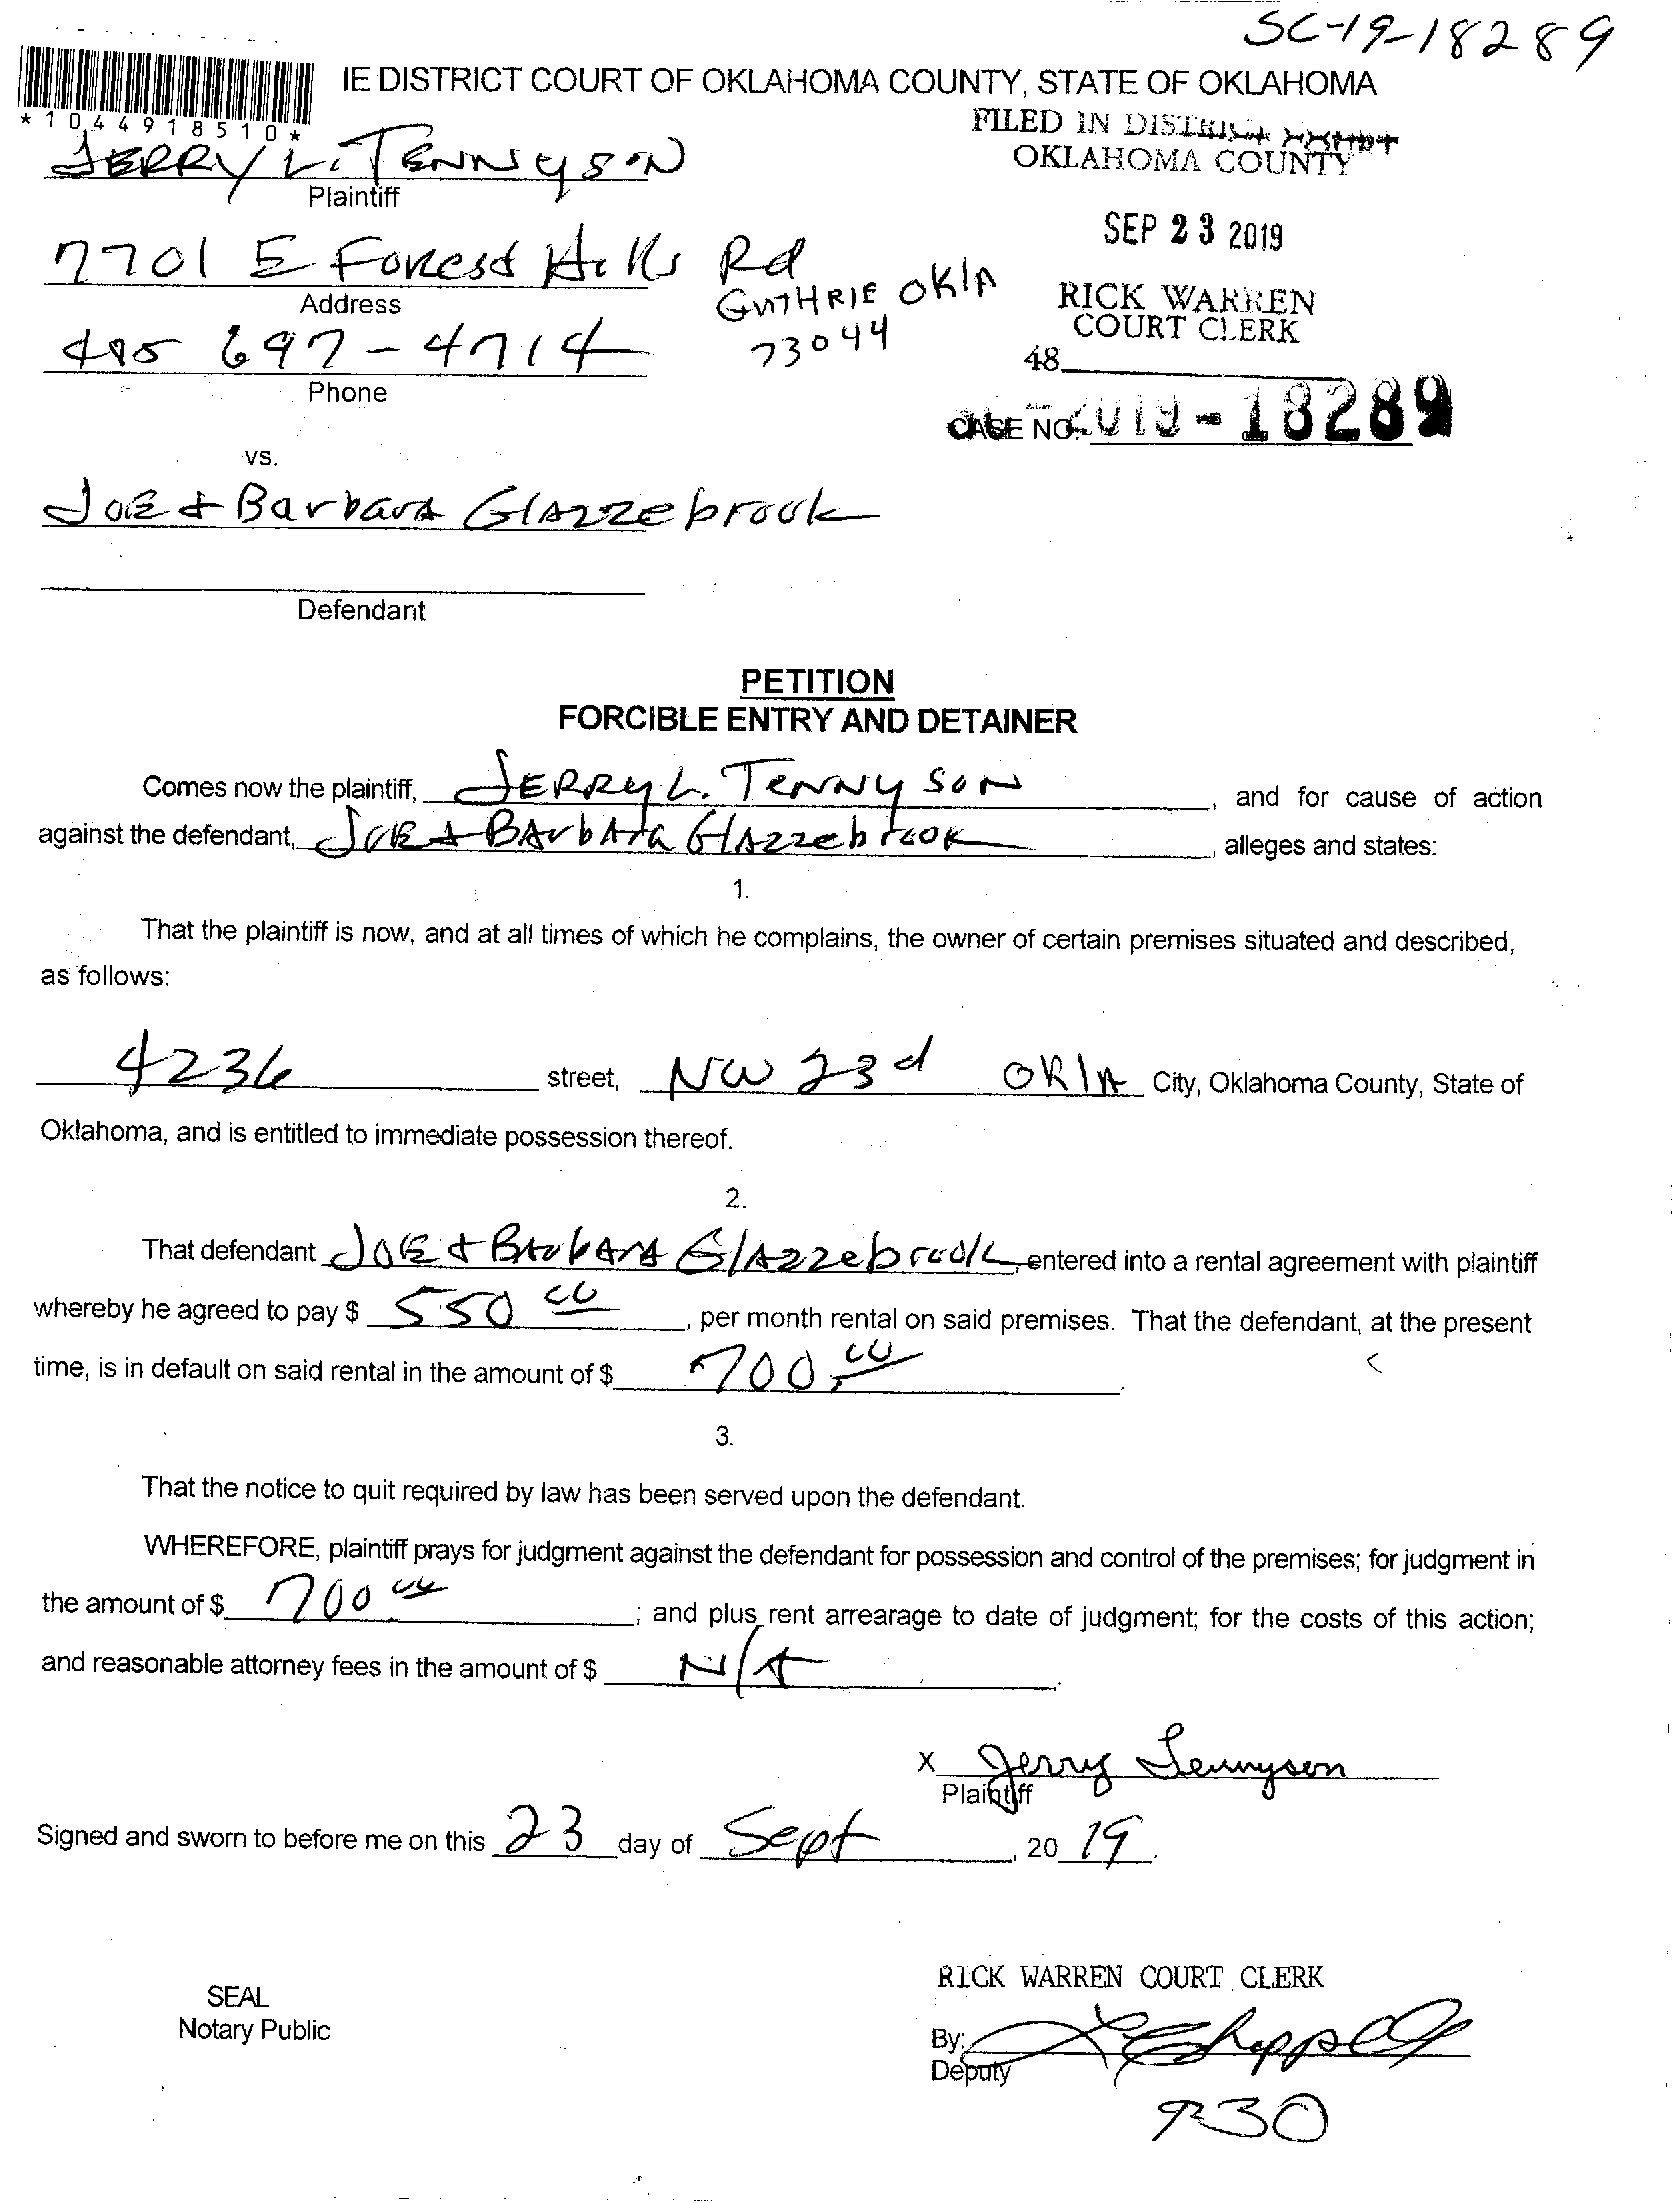 SC-19-18289
IE DISTRICT COURT OF OKLAHOMA COUNTY, STATE OF OKLAHOMA
*1044918510*
FILED IN DISTRICT COURT
OKLAHOMA COUNTY
JERRY L. TENNYSON
Plaintiff
SEP 23 2019
7701 E Forest Hills Rd
Address
GUTHRIE OKlA
73044
RICK WARREN
COURT CLERK
405 697-4714
Phone
48
CASE NO. 2019-18289
vs.
JOE & Barbara Glazzebrook
Defendant
PETITION
FORCIBLE ENTRY AND DETAINER
Comes now the plaintiff, JERRY L. TENNYSON, and for cause of action
against the defendant, JOE & BArbAra GlAzzebrook, alleges and states:
1.
That the plaintiff is now, and at all times of which he complains, the owner of certain premises situated and described,
as follows:
4236 street, NW 23d OklA City, Oklahoma County, State of
Oklahoma, and is entitled to immediate possession thereof.
2.
That defendant JOE & BArbArA GlAzzebrook, entered into a rental agreement with plaintiff
whereby he agreed to pay $ 550 00, per month rental on said premises. That the defendant, at the present
time, is in default on said rental in the amount of $ 700 00.
3.
That the notice to quit required by law has been served upon the defendant.
WHEREFORE, plaintiff prays for judgment against the defendant for possession and control of the premises; for judgment in
the amount of $ 700 00; and plus rent arrearage to date of judgment; for the costs of this action;
and reasonable attorney fees in the amount of $ N/A.
X Jerry Tennyson
Plaintiff
Signed and sworn to before me on this 23 day of Sept, 20 19.
RICK WARREN COURT CLERK
SEAL
Notary Public
By:
Deputy